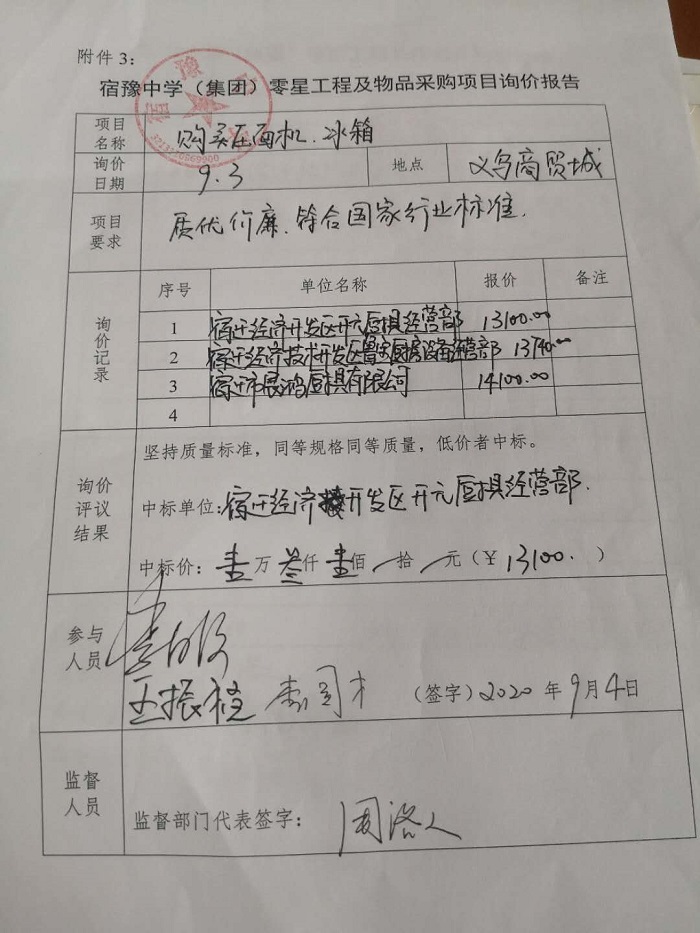 附件 3：
宿豫中学（集团）零星工程及物品采购项目询价报告
项目名称 购买压面机、冰箱
询价日期 9.3 地点 义乌商贸城
项目要求 质优价廉、符合国家行业标准.
询价记录 序号 单位名称 报价 备注
1 宿迁经济开发区开元厨具经营部 13100.00
2 宿迁经济技术开发区厨房设备经营部 13740.00
3 宿迁市晨鸿厨具有限公司 14100.00
4
坚持质量标准，同等规格同等质量，低价者中标。
询价评议结果
中标单位：宿迁经济开发区开元厨具经营部.
中标价：壹万叁仟壹佰/拾/元（¥13100. ）
参与人员
王振 （签字）2020 年 9月 4日
监督人员
监督部门代表签字：周洛人